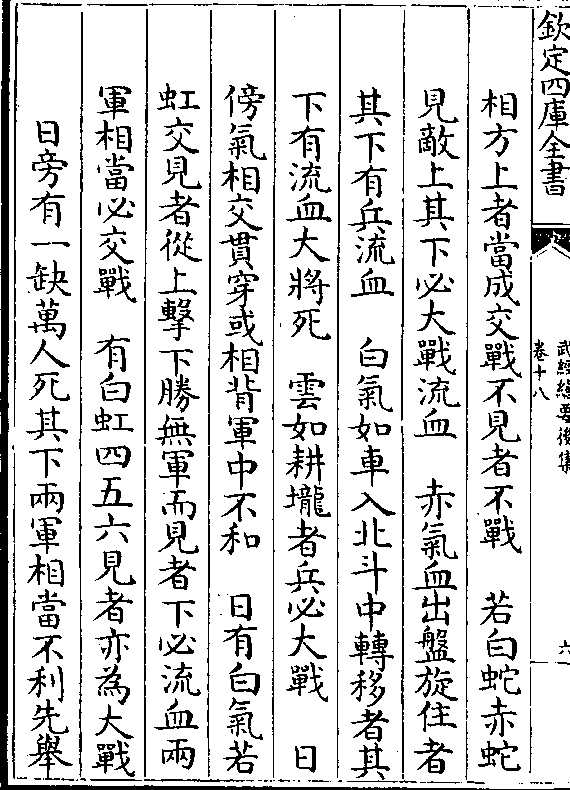 欽定四庫全書
武經總要後集
卷十八
六
相方上者當成交戰不見者不戰　若白蛇赤蛇
見敵上其下必大戰流血　赤氣血出盤旋住者
其下有兵流血　白氣如車入北斗中轉移者其
下有流血大將死　雲如耕壠者兵必大戰　日
傍氣相交貫穿或相背軍中不和　日有白氣若
虹交見者從上擊下勝無軍而見者下必流血兩
軍相當必交戰　有白虹四五六見者亦為大戰
日旁有一缺萬人死其下兩軍相當不利先舉